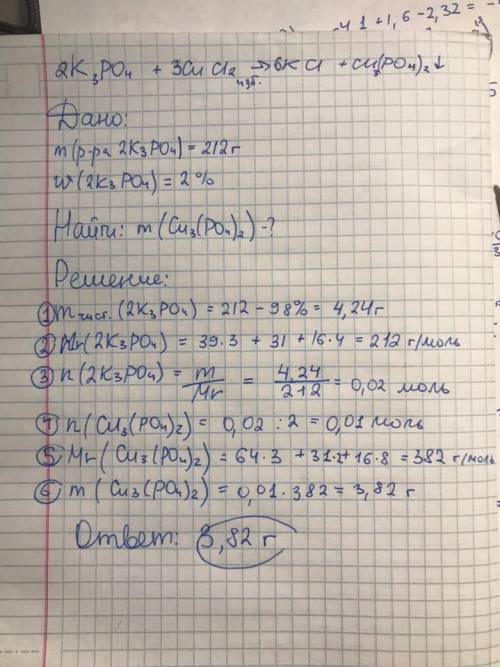 -41+1,6-2,32=
2K₃PO₄ + 3CuCl₂ изб. → 6KCl + Cu₃(PO₄)₂↓
Дано:
m(р-ра 2K₃PO₄) = 212 г
w(2K₃PO₄) = 2%
Найти: m(Cu₃(PO₄)₂) - ?
Решение:
① m чист. (2K₃PO₄) = 212 - 98% = 4,24 г
② Mr(2K₃PO₄) = 39·3 + 31 + 16·4 = 212 г/моль
③ n(2K3PO₄) = m/Mr = 4,24/212 = 0,02 моль
④ n(Cu₃(PO₄)₂) = 0,02 : 2 = 0,01 моль
⑤ Mr(Cu₃(PO₄)₂) = 64·3 + 31·2 + 16·8 = 382 г/моль
⑥ m(Cu₃(PO₄)₂) = 0,01·382 = 3,82 г
Ответ: 3,82 г